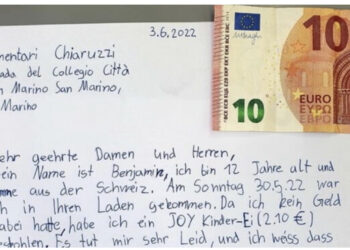 3.6.2022
mentari Chiaruzzi
ada del Collegio Città
n Marino San Marino,
Marino
ehr geehrte Damen und Herren,
ein Name ist Benjamin, ich bin 12 Jahre alt und
me aus der Schweiz. Am Sonntag 30.5.22 war
h in Ihren Laden gekommen. Da ich kein Geld
abei hatte, habe ich ein JOY Kinder-Ei (2.10 €)
estohlen. Es tut mir sehr Leid, und ich weiss dass
10
10
EURO
ΕΥΡΩ
ЕВРО